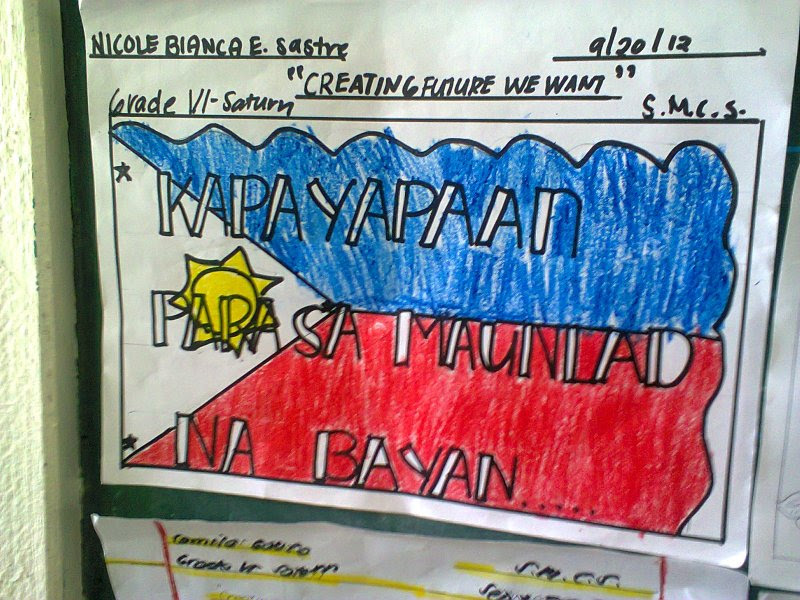 NICOLE BIANCA E. Sastre 9/20/12
"CREATING FUTURE WE WANT"
Grade VI-Saturn S.M.C.S.
KAPAYAPAAN
PARA SA MAUNLAD
NA BAYAN.....
Grade VI Saturn S.M.C.S.